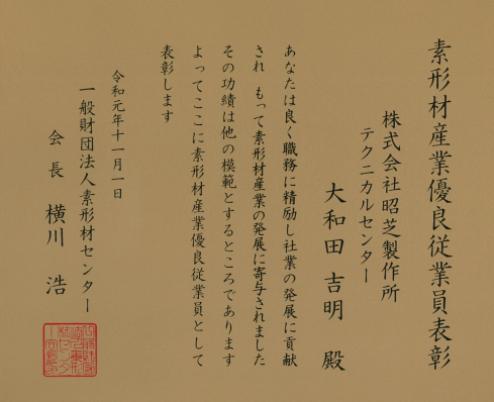 素形材産業優良従業員表彰
株式会社昭芝製作所
テクニカルセンター
大和田 吉明 殿
あなたは良く職務に精励し社業の発展に貢献
され もって素形材産業の発展に寄与されました
その功績は他の模範とするところであります
よってここに素形材産業優良従業員として
表彰します
令和元年十一月一日
一般財団法人素形材センター
会長 横川 浩